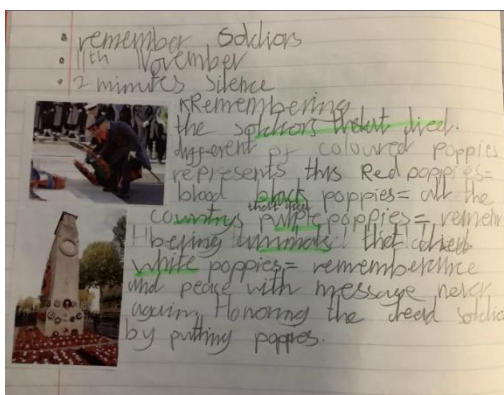 • remember Soldiors
• 11th November
• 2 minutes silence
Remembering
the soldiors that died.
different of coloured poppies
represents this Red poppies=
blood black poppies= all the
countrys that died purple poppies= remem
bering animals that died
white poppies= rememberence
and peace with message never
again. Honoring the dead soldio
by putting poppies.